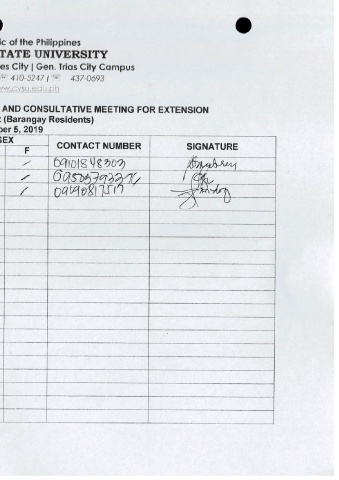 ic of the Philippines
TATE UNIVERSITY
es City | Gen. Trias City Campus
☏ 410-5247 | ☏ 437-0693
ww.cvsu.edu.ph
AND CONSULTATIVE MEETING FOR EXTENSION
t (Barangay Residents)
ber 5, 2019
SEX
F CONTACT NUMBER SIGNATURE
/ 09101848303
/
/ 09090817517